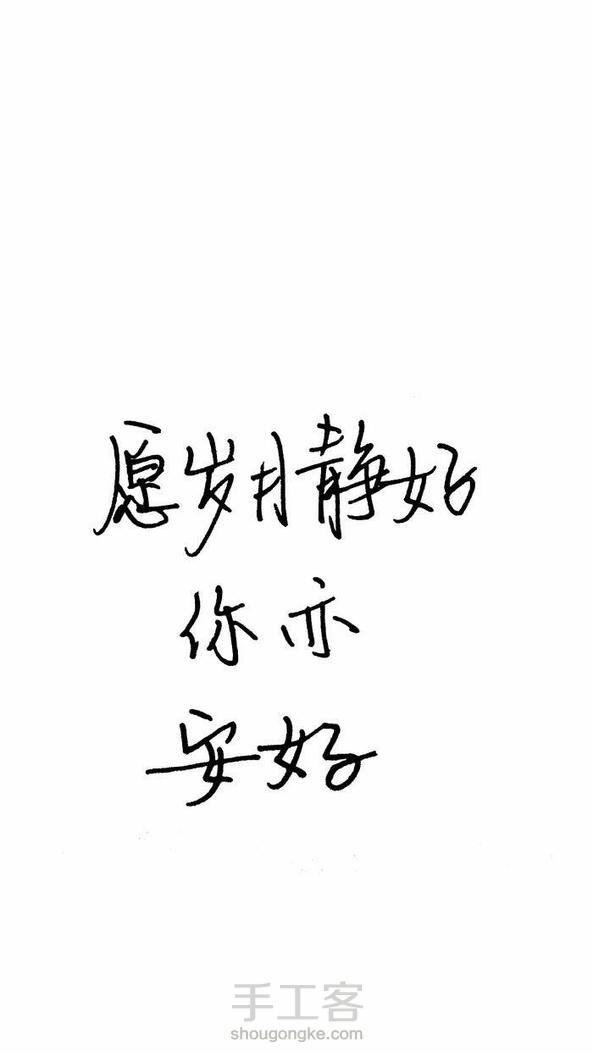 愿岁月静好
你亦
安好
手工客
shougongke.com